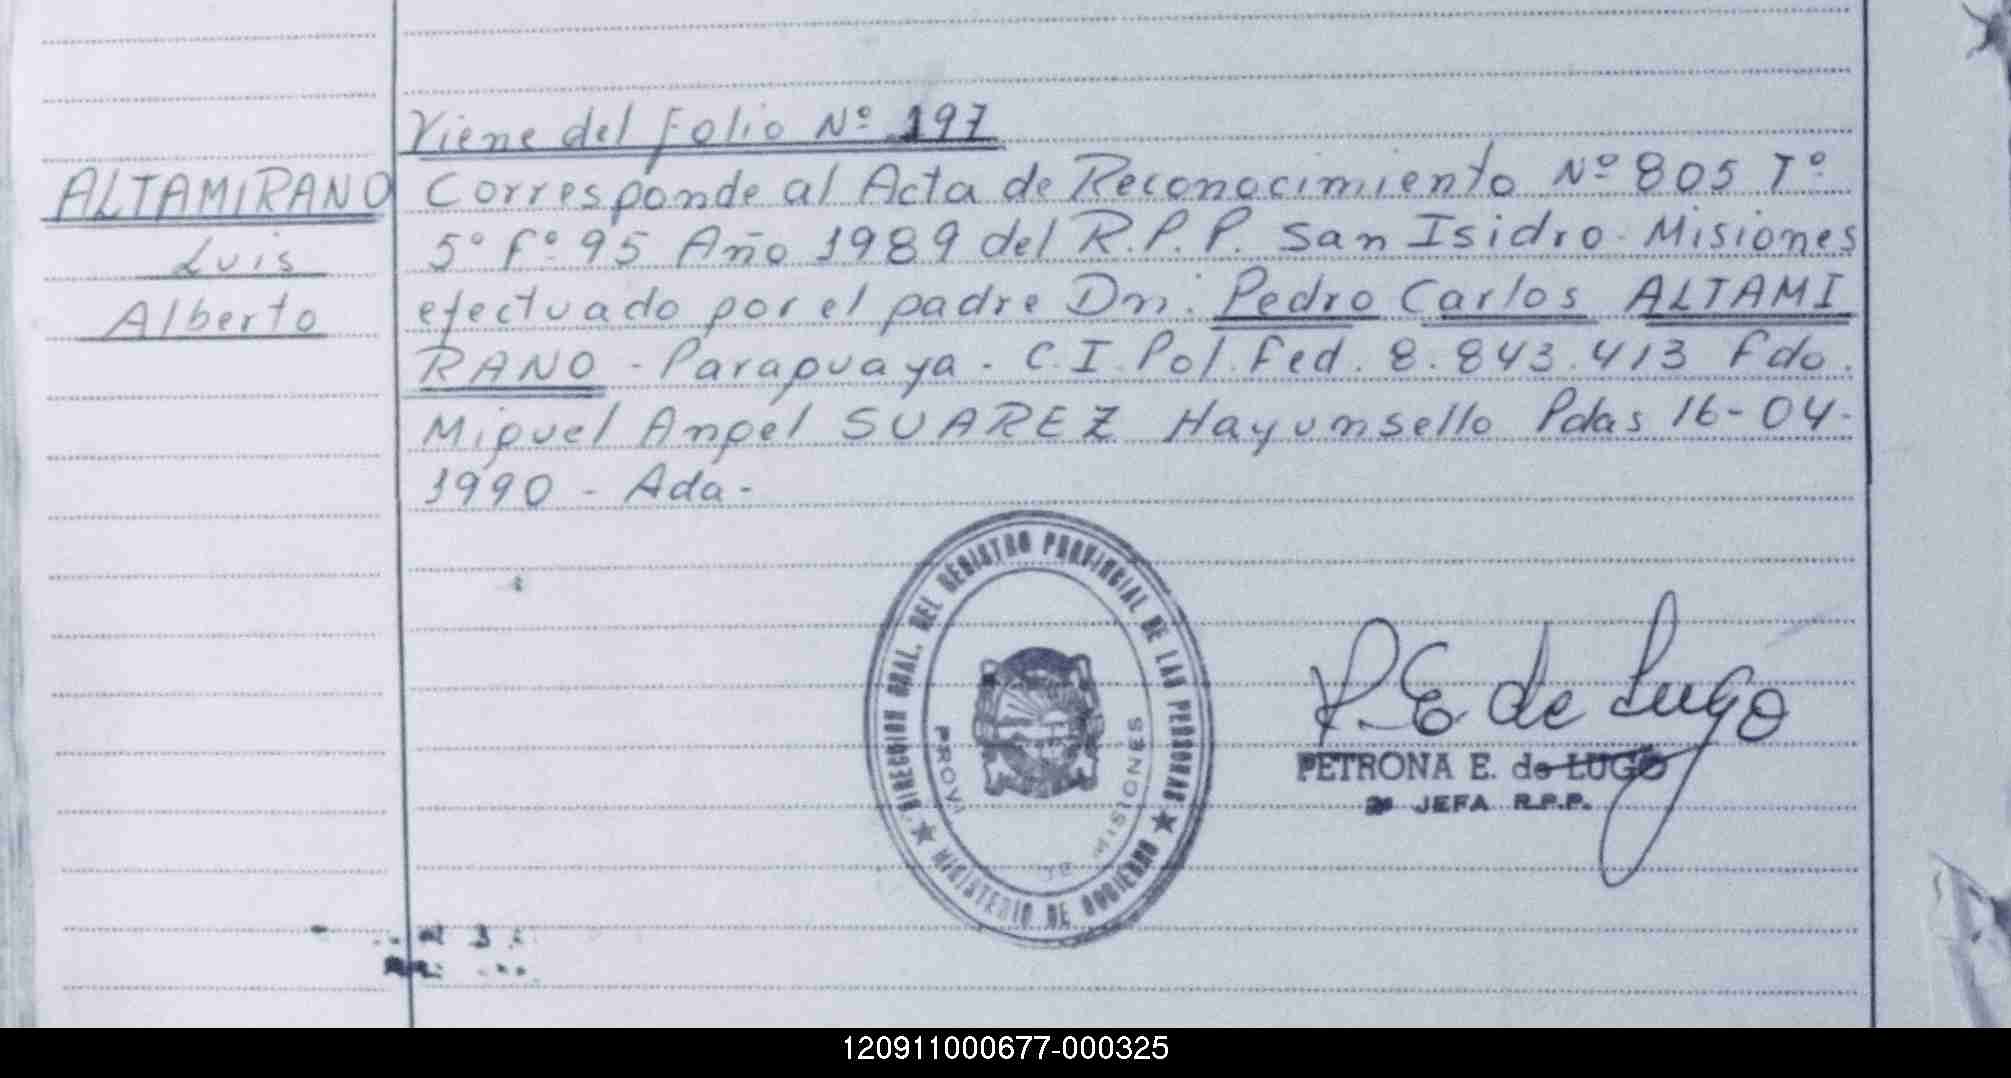 Viene del Folio Nº 197
ALTAMIRANO
Luis
Alberto
Corresponde al Acta de Reconocimiento Nº 805 Tº
5º fº 95 Año 1989 del R.P.P. San Isidro. Misiones
efectuado por el padre Dn: Pedro Carlos ALTAMI
RANO - Paraguaya - C.I. Pol. Fed. 8.843.413 Fdo.
Miguel Angel SUAREZ Hay un sello Pdas 16-04-
1990 - Ada -
DIRECCION GRAL. DEL REGISTRO PROVINCIAL DE LAS PERSONAS
MINISTERIO DE GOBIERNO
MISIONES
P.E. de Lugo
PETRONA E. de LUGO
JEFA R.P.P.
120911000677-000325